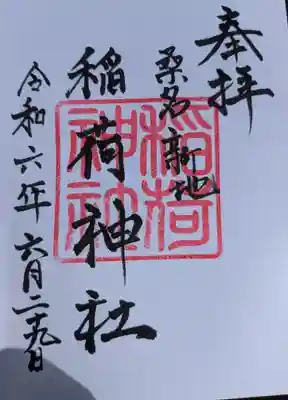 奉拝
桑名新地
稲荷神社
令和六年六月二十九日
稲荷
神社